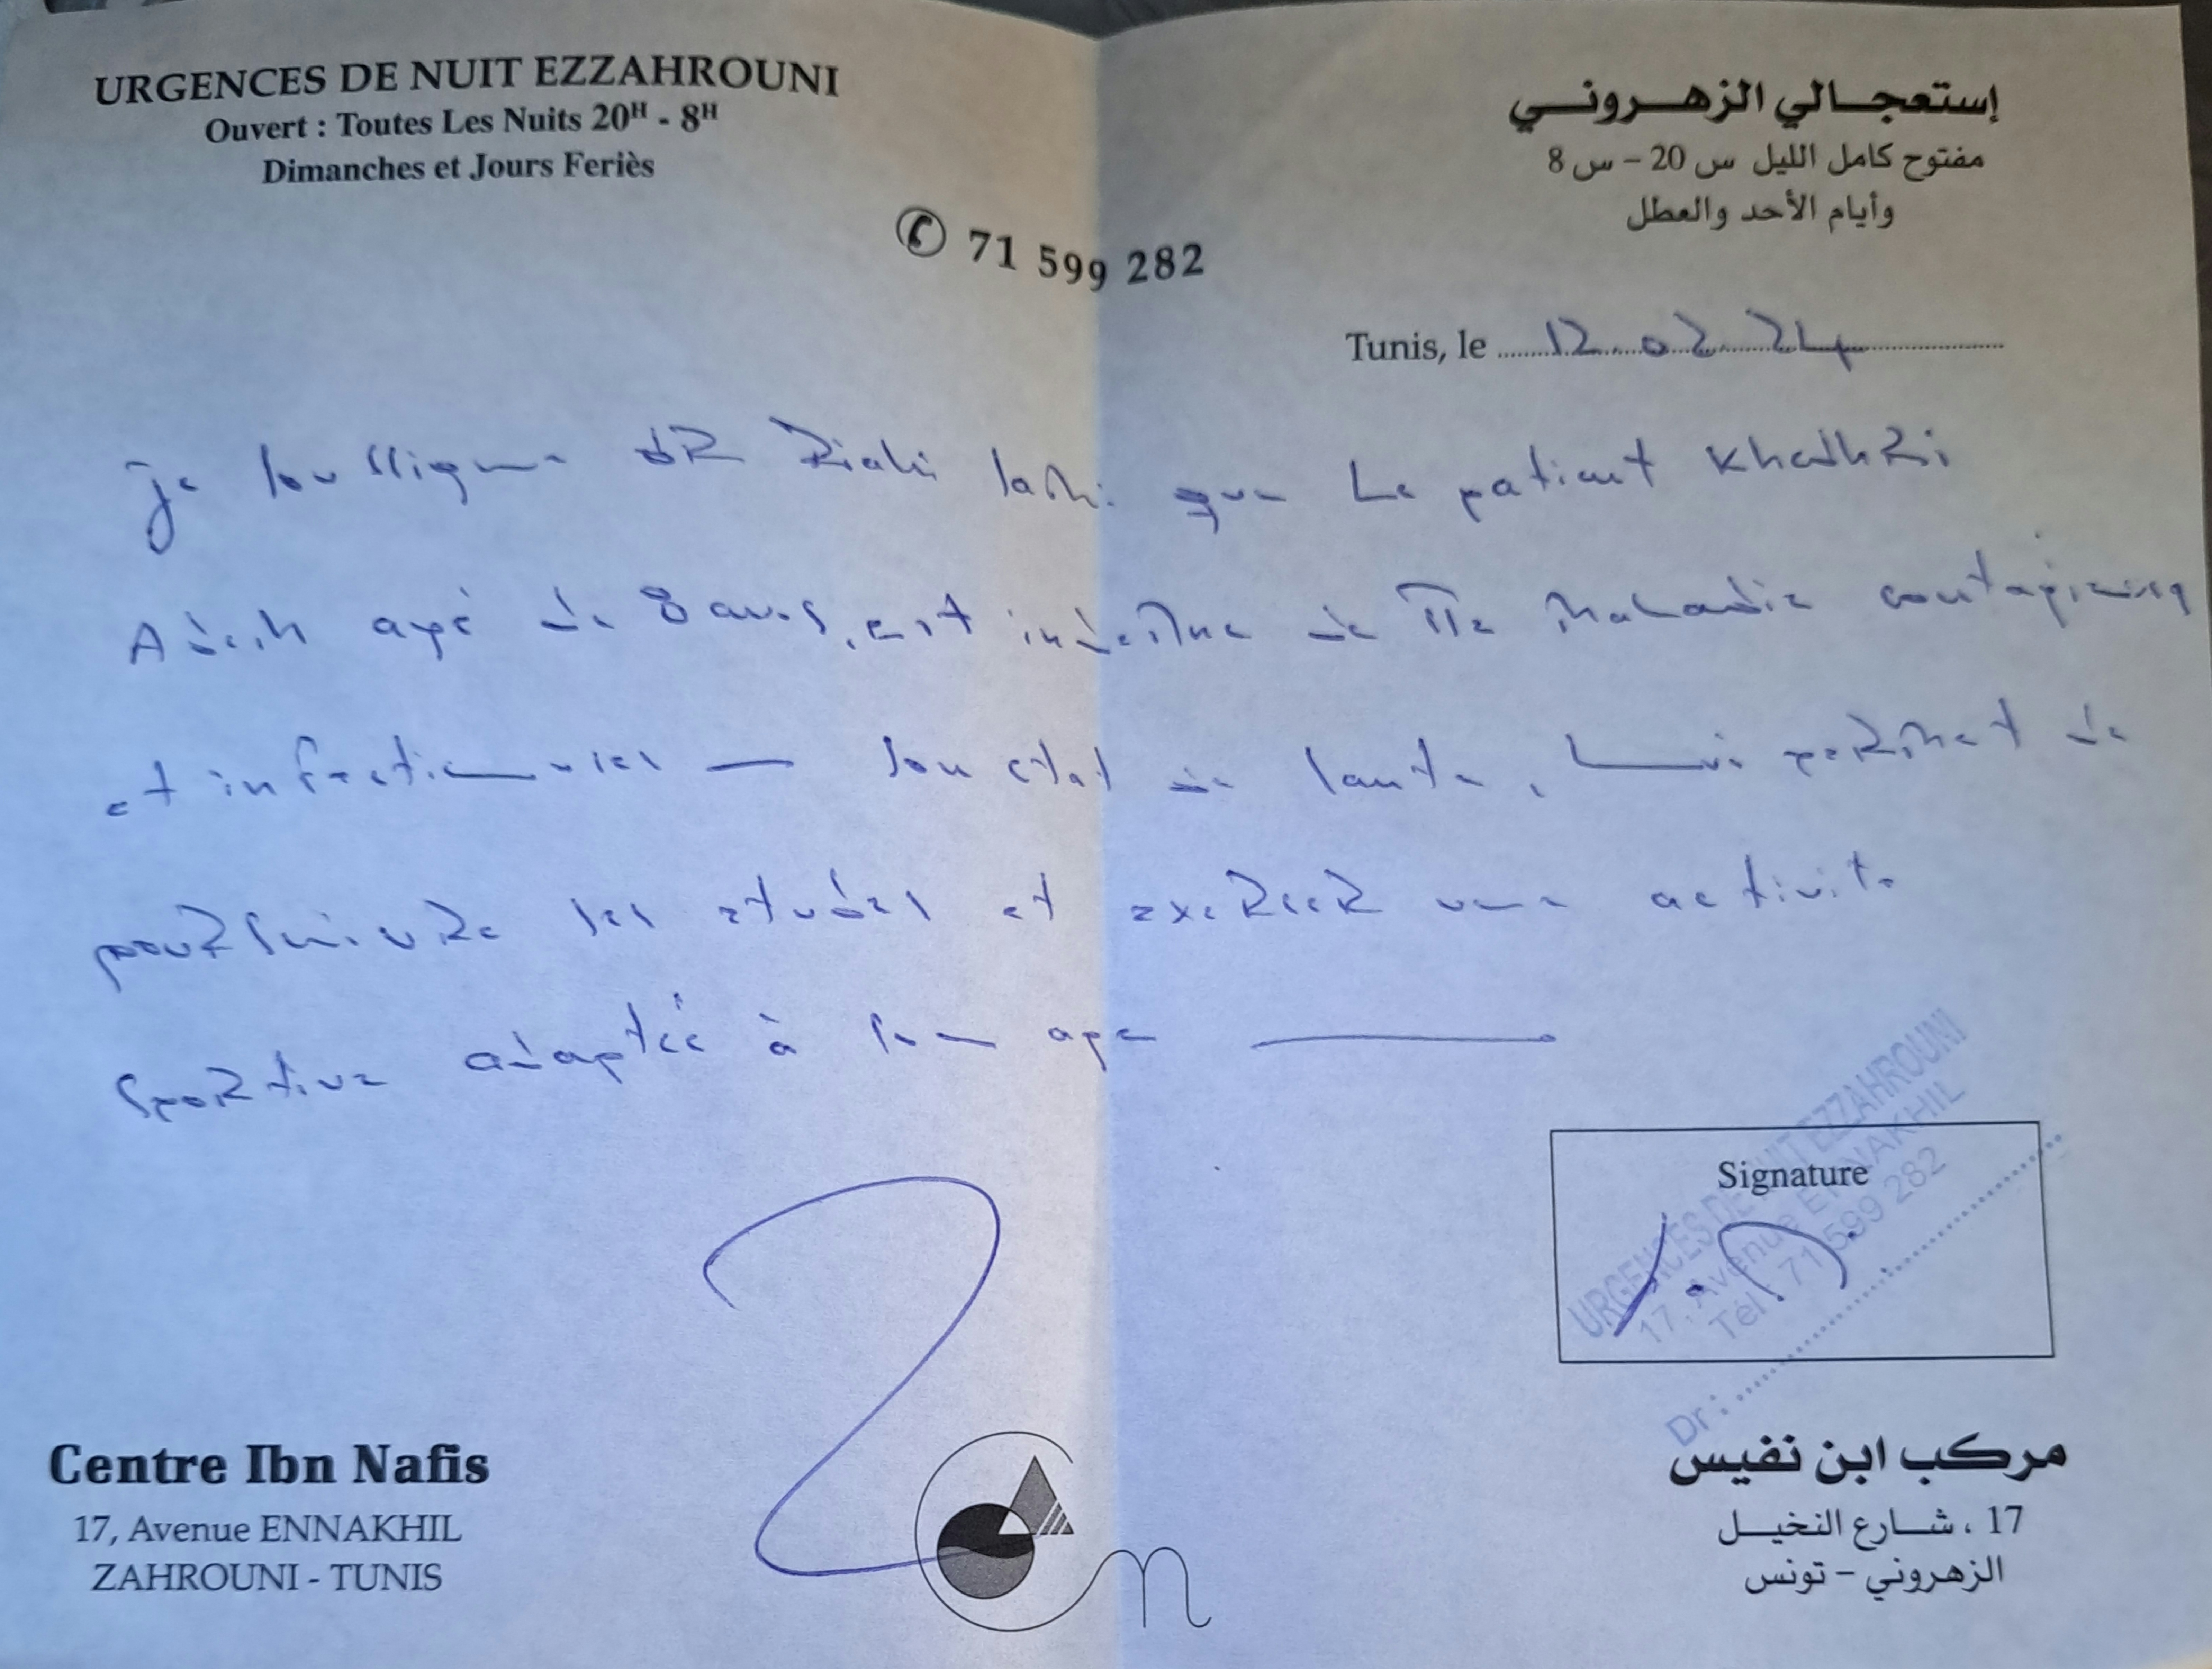 URGENCES DE NUIT EZZAHROUNI
Ouvert : Toutes Les Nuits 20H - 8H
Dimanches et Jours Feriès
إستعجالي الزهروني
مفتوح كامل الليل س 20 - س 8
وأيام الأحد والعطل
71 599 282
Tunis, le 12.02.24
je soussigne DR Riahi que Le patient
agé de 8 ans, est indemne de Tte Maladie contagieuse
et infectieuses — son etat de sante, Lui permet de
poursuivre ses etudes et exercer une activite
sportive adaptée à son age
Signature
URGENCES DE NUIT EZZAHROUNI
17, Avenue ENNAKHIL
Tél : 71 599 282
Dr :
Centre Ibn Nafis
17, Avenue ENNAKHIL
ZAHROUNI - TUNIS
مركب ابن نفيس
17 ، شارع النخيل
الزهروني - تونس